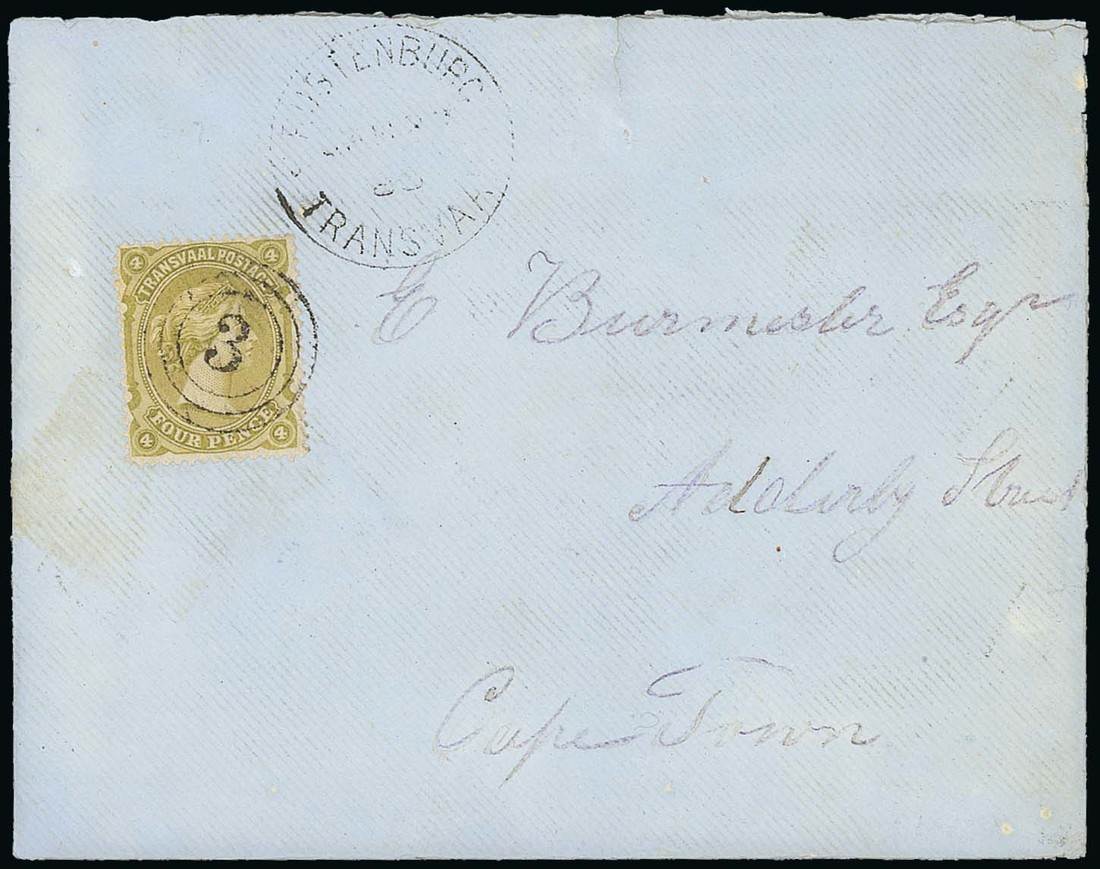 RUSTENBURG
80
TRANSVAA
4 4
TRANSVAAL POSTAG
3
FOUR PENCE
4 4
E Burmester Esqr
Adderly Street
Cape Town